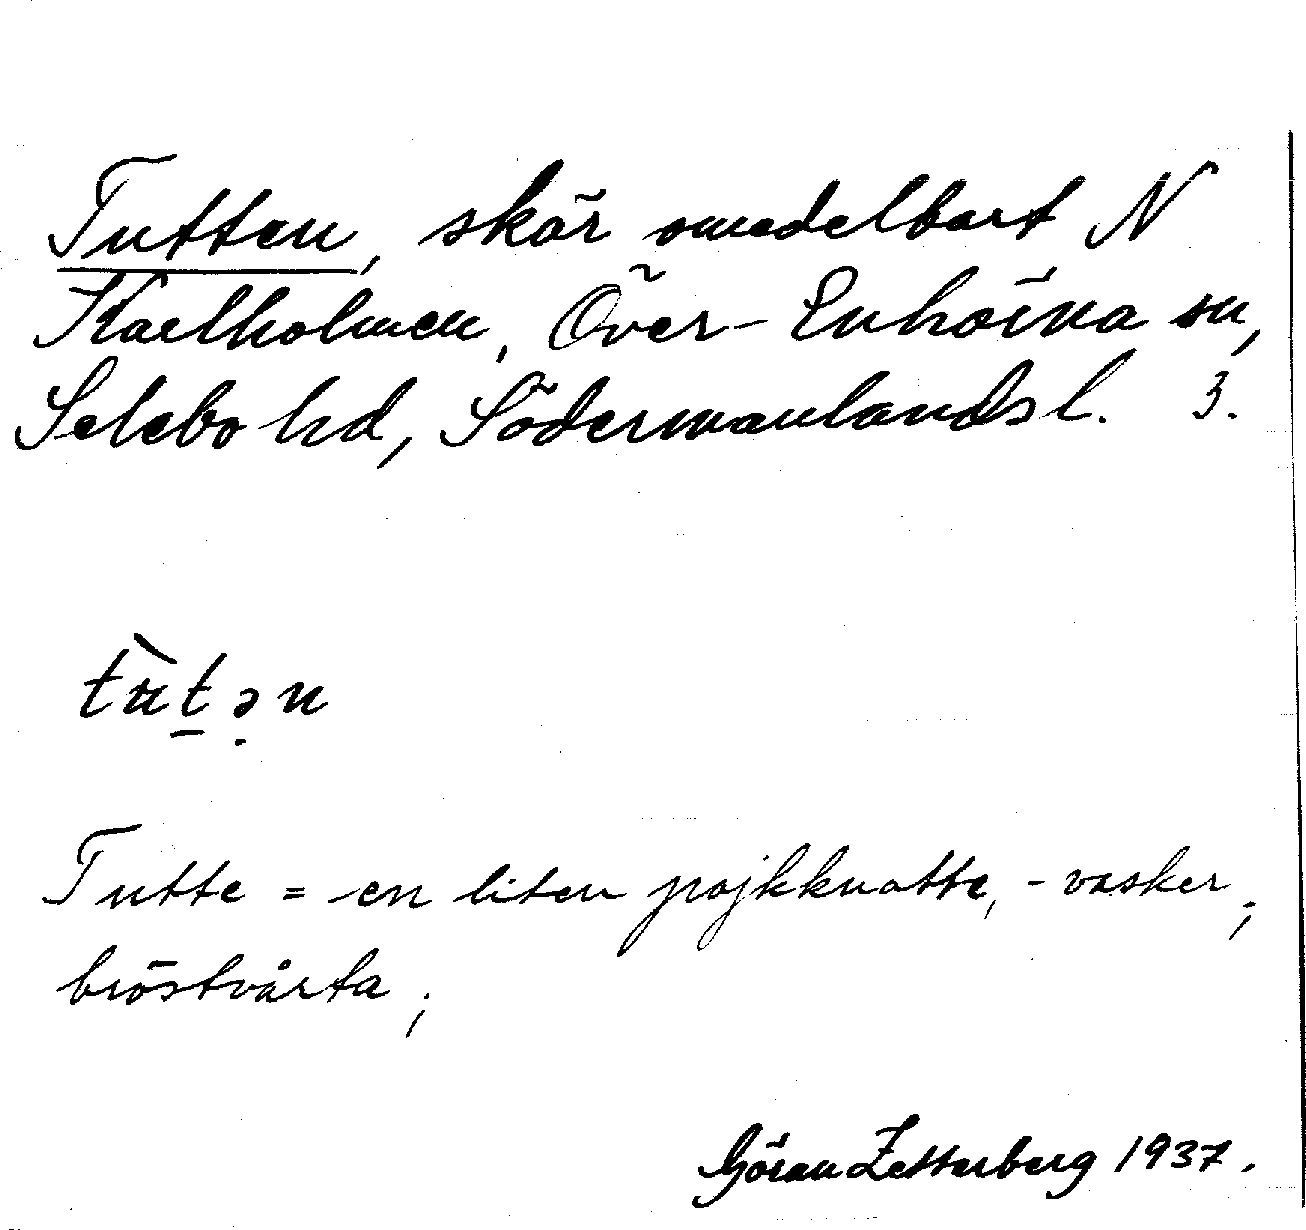 Tutten, skär omedelbart N
Karlholmen, Över-Enhörna sn,
Selebo hd, Södermanlands l. 3.
tùt̠ə̣n
Tutte = en liten pojkknatte, -vasker,
bröstvårta;
Göran Zetterberg 1937.